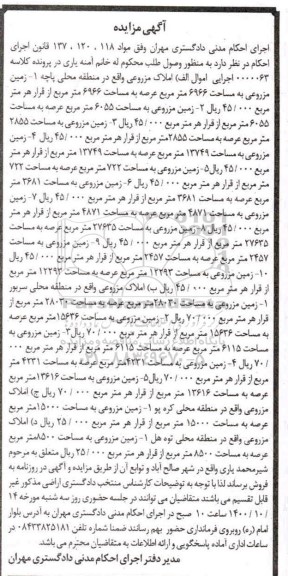 آگهی مزایده
اجرای احکام مدنی دادگستری مهران وفق مواد ۱۱۸ ، ۱۲۰ ، ۱۳۷ قانون اجرای
احکام در نظر دارد به منظور وصول طلب محکوم له خانم آمنه یاری در پرونده کلاسه
۰۰۰۰۰۶۳ اجرایی اموال الف) املاک مزروعی واقع در منطقه محلی پاچه ۱- زمین
مزروعی به مساحت ۶۹۶۶ متر مربع عرصه به مساحت ۶۹۶۶ متر مربع از قرار هر متر
مربع ۴۵/۰۰۰ ریال ۲- زمین مزروعی به مساحت ۶۰۵۵ متر مربع عرصه به مساحت
۶۰۵۵ متر مربع از قرار هر متر مربع ۴۵/۰۰۰ ریال ۳- زمین مزروعی به مساحت ۲۸۵۵
متر مربع عرصه به مساحت ۲۸۵۵ متر مربع از قرار هر متر مربع ۴۵/۰۰۰ ریال ۴- زمین
مزروعی به مساحت ۱۳۷۴۹ متر مربع عرصه به مساحت ۱۳۷۴۹ متر مربع از قرار هر متر
مربع ۴۵/۰۰۰ ریال ۵- زمین مزروعی به مساحت ۷۲۲ متر مربع عرصه به مساحت ۷۲۲
متر مربع از قرار هر متر مربع ۴۵/۰۰۰ ریال ۶- زمین مزروعی به مساحت ۳۶۸۱ متر
مربع عرصه به مساحت ۳۶۸۱ متر مربع از قرار هر متر مربع ۴۵/۰۰۰ ریال ۷- زمین
مزروعی به مساحت ۴۸۷۱ متر مربع عرصه به مساحت ۴۸۷۱ متر مربع از قرار هر متر
مربع ۴۵/۰۰۰ ریال ۸- زمین مزروعی به مساحت ۲۷۶۳۵ متر مربع عرصه به مساحت
۲۷۶۳۵ متر مربع از قرار هر متر مربع ۴۵/۰۰۰ ریال ۹- زمین مزروعی به مساحت
۲۴۵۷ متر مربع عرصه به مساحت ۲۴۵۷ متر مربع از قرار هر متر مربع ۴۵/۰۰۰ ریال
۱۰- زمین مزروعی به مساحت ۱۲۲۹۳ متر مربع عرصه به مساحت ۱۲۲۹۳ متر مربع
از قرار هر متر مربع ۴۵/۰۰۰ ریال ب) املاک مزروعی واقع در منطقه محلی سرپور
۱- زمین مزروعی به مساحت ۲۸۰۲۰ متر مربع عرصه به مساحت ۲۸۰۲۰ متر مربع از
قرار هر متر مربع ۷۰/۰۰۰ ریال ۲- زمین مزروعی به مساحت ۱۵۶۳۶ متر مربع عرصه
به مساحت ۱۵۶۳۶ متر مربع از قرار هر متر مربع ۷۰/۰۰۰ ریال ۳- زمین مزروعی به
مساحت ۶۱۱۵ متر مربع عرصه به مساحت ۶۱۱۵ متر مربع از قرار هر متر مربع ۰۰۰
/۷۰ ریال ۴- زمین مزروعی به مساحت ۴۲۳۱ متر مربع عرصه به مساحت ۴۲۳۱ متر
مربع از قرار هر متر مربع ۷۰/۰۰۰ ریال ۵- زمین مزروعی به مساحت ۱۳۶۱۶ متر مربع
عرصه به مساحت ۱۳۶۱۶ متر مربع از قرار هر متر مربع ۷۰/۰۰۰ ریال ج) املاک
مزروعی واقع در منطقه محلی کره پو ۱- زمین مزروعی به مساحت ۱۵۰۰۰ متر مربع
عرصه به مساحت ۱۵۰۰۰ متر مربع از قرار هر متر مربع ۲۵/۰۰۰ ریال د) املاک
مزروعی واقع در منطقه محلی توه هل ۱- زمین مزروعی به مساحت ۸۵۰۰ متر مربع
عرصه به مساحت ۸۵۰۰ متر مربع از قرار هر متر مربع ۲۵/۰۰۰ ریال متعلق به مرحوم
شیرمحمد یاری واقع در شهر صالح آباد و توابع آن از طریق مزایده و آگهی در روزنامه به
فروش برساند لذا با توجه به توضیحات کارشناس منتخب دادگستری اراضی مذکور غیر
قابل تقسیم می باشند متقاضیان می توانند در جلسه حضوری روز سه شنبه مورخه ۱۴
/۱۴۰۰/۱۰ ساعت ۱۰ صبح در اجرای احکام مدنی دادگستری مهران به آدرس بلوار
امام (ره) روبروی فرمانداری حضور بهم رسانند ضمنا شماره تلفن ۰۸۴۳۳۸۲۵۱۸۱ در
ساعات اداری آماده پاسخگویی و ارائه اطلاعات به متقاضیان محترم می باشد.
مدیر دفتر اجرای احکام مدنی دادگستری مهران